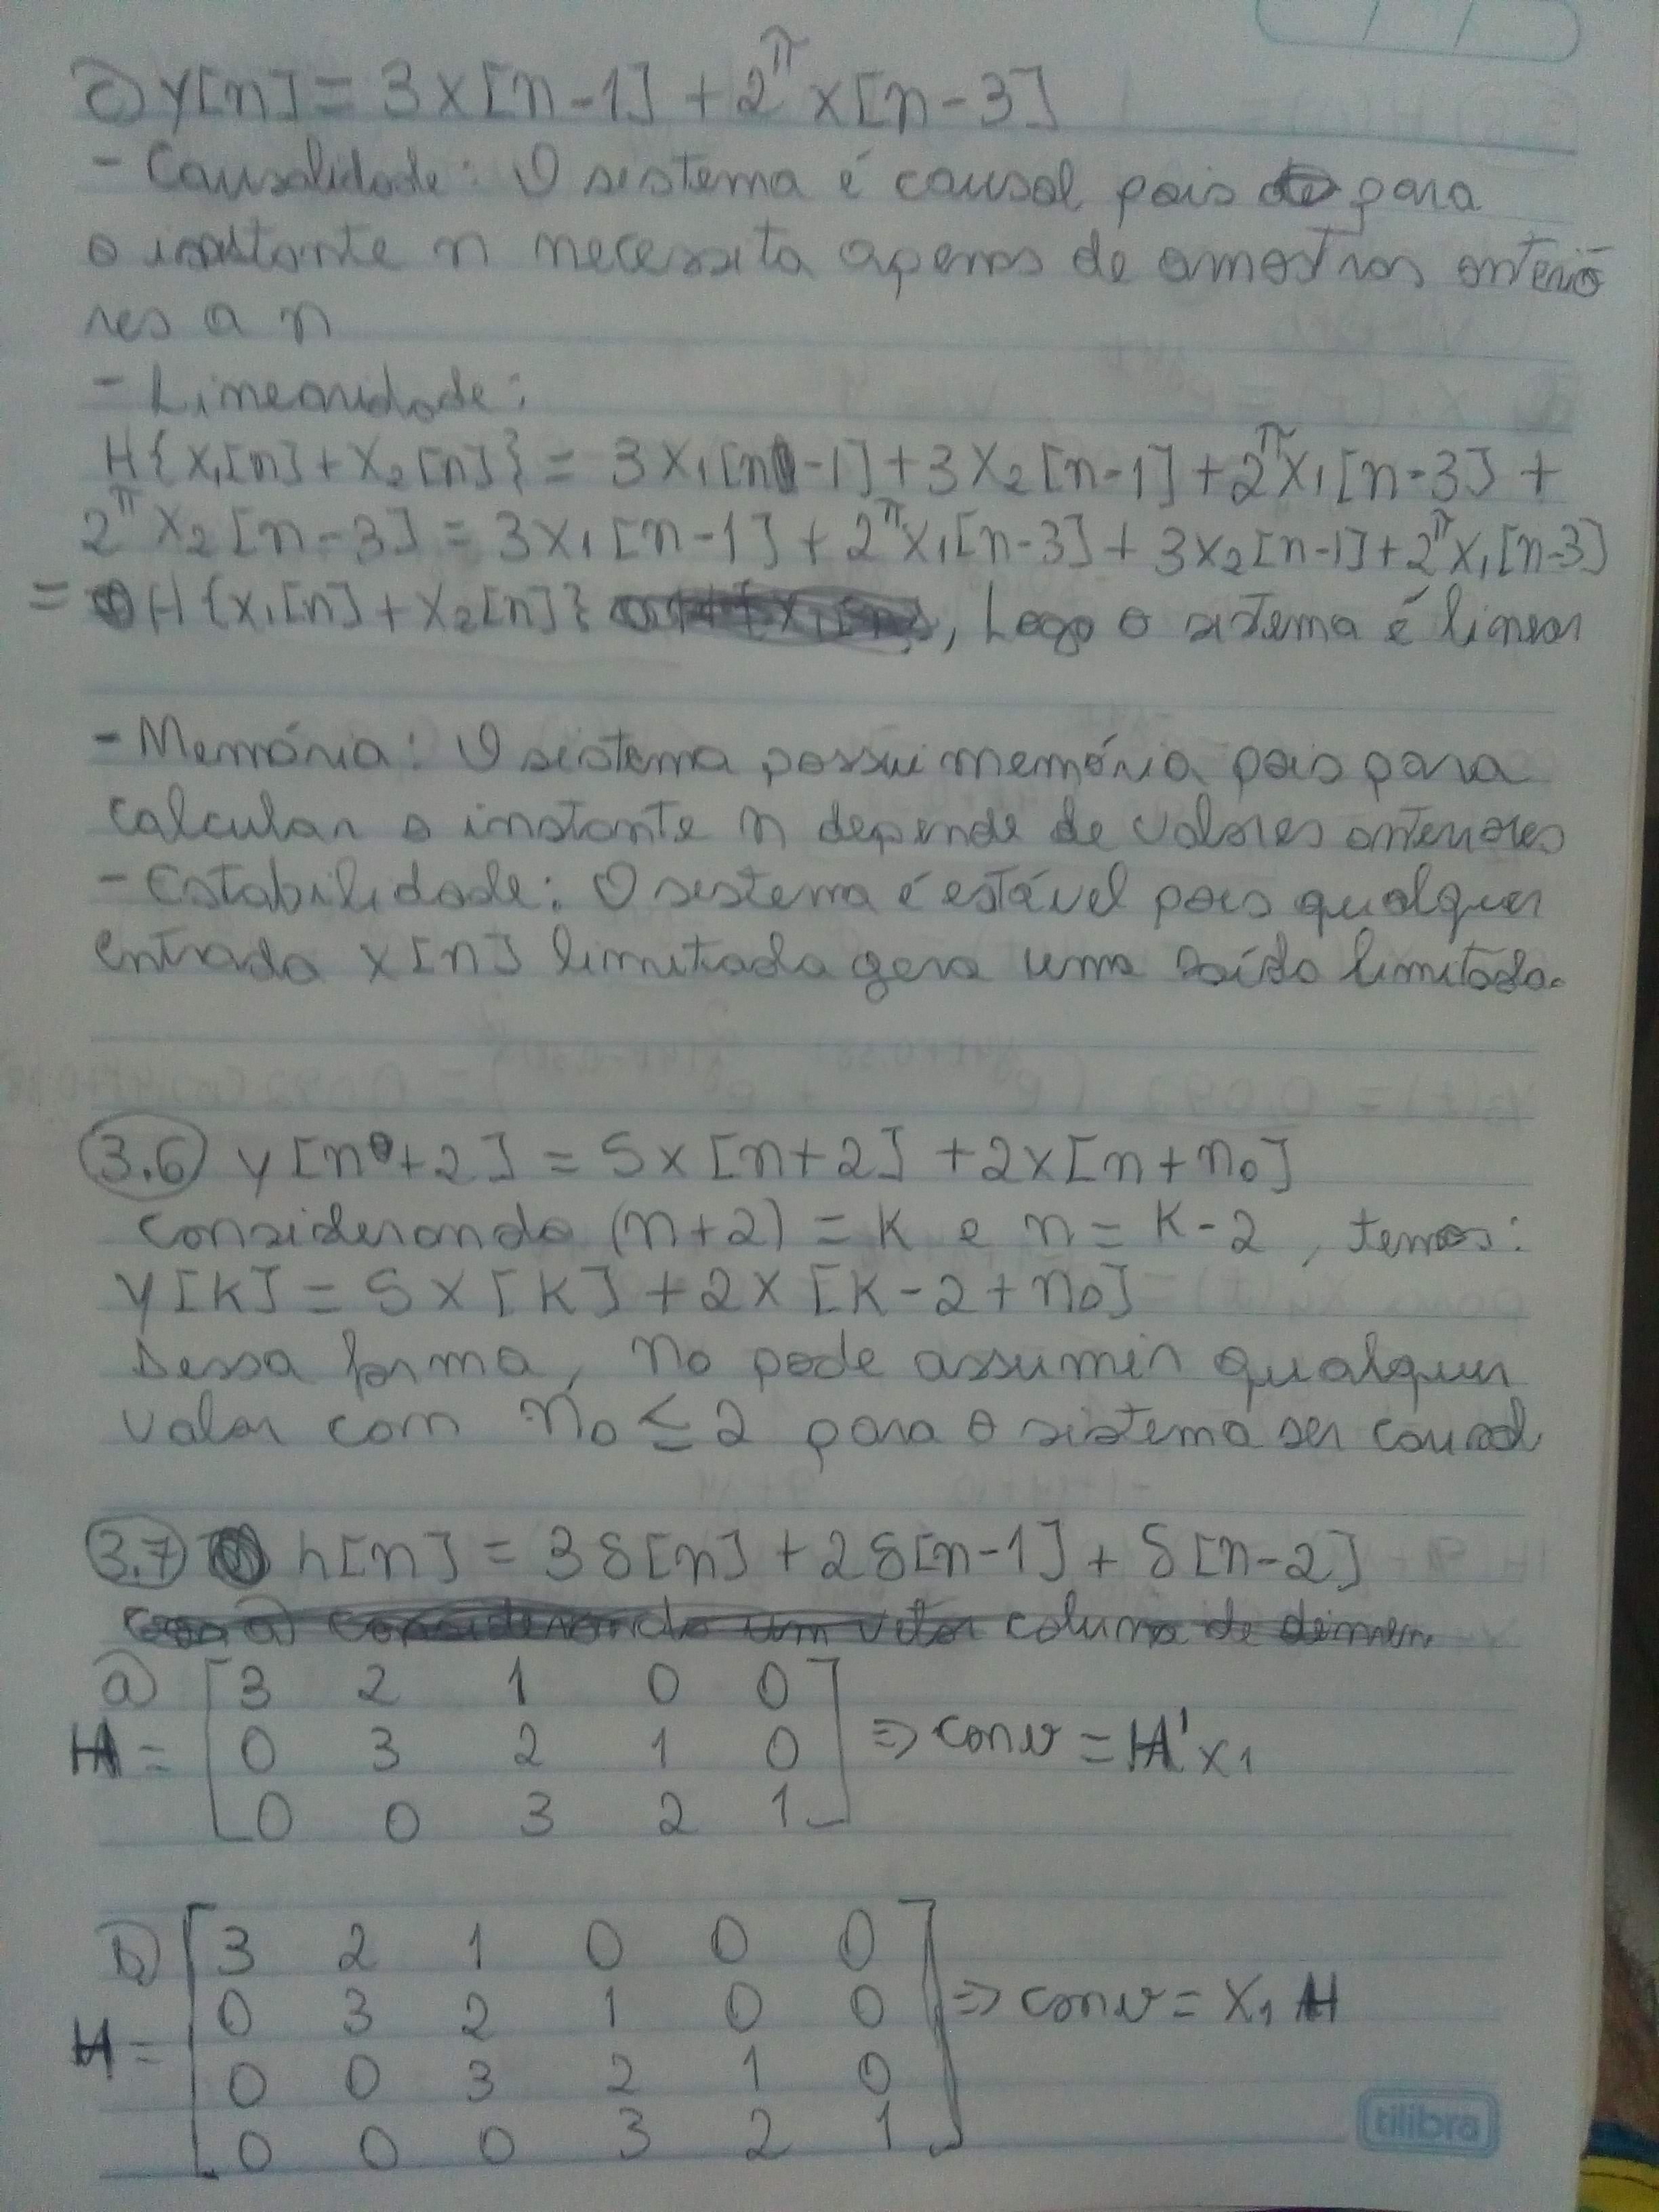 c) y[n] = 3x[n-1] + 2^π x[n-3]
- Causalidade: O sistema é causal pois para
o instante n necessita apenas de amostras anterio
res a n
- Linearidade:
H{x₁[n]+x₂[n]} = 3x₁[n-1]+3x₂[n-1]+2^π x₁[n-3] +
2^π x₂[n-3] = 3x₁[n-1] + 2^π x₁[n-3] + 3x₂[n-1]+2^π x₁[n-3]
= H{x₁[n]+x₂[n]} , Logo o sistema é linear
- Memória: O sistema possui memória pois para
calcular o instante n depende de valores anteriores
- Estabilidade: O sistema é estável pois qualquer
entrada x[n] limitada gera uma saída limitada.
3.6 y[n+2] = 5x[n+2] + 2x[n+n₀]
considerando (n+2) = k e n = k-2, temos:
y[k] = 5x[k] + 2x[k-2+n₀]
Dessa forma, n₀ pode assumir qualquer
valor com n₀ ≤ 2 para o sistema ser causal
3.7 h[n] = 3δ[n] + 2δ[n-1] + δ[n-2]
a) considerando um vetor coluna de dimen
a) [3 2 1 0 0
H = 0 3 2 1 0 ⇒ conv = H'x₁
0 0 3 2 1]
b) [3 2 1 0 0 0
0 3 2 1 0 0 ⇒ conv = x₁H
H = 0 0 3 2 1 0
0 0 0 3 2 1]
tilibra